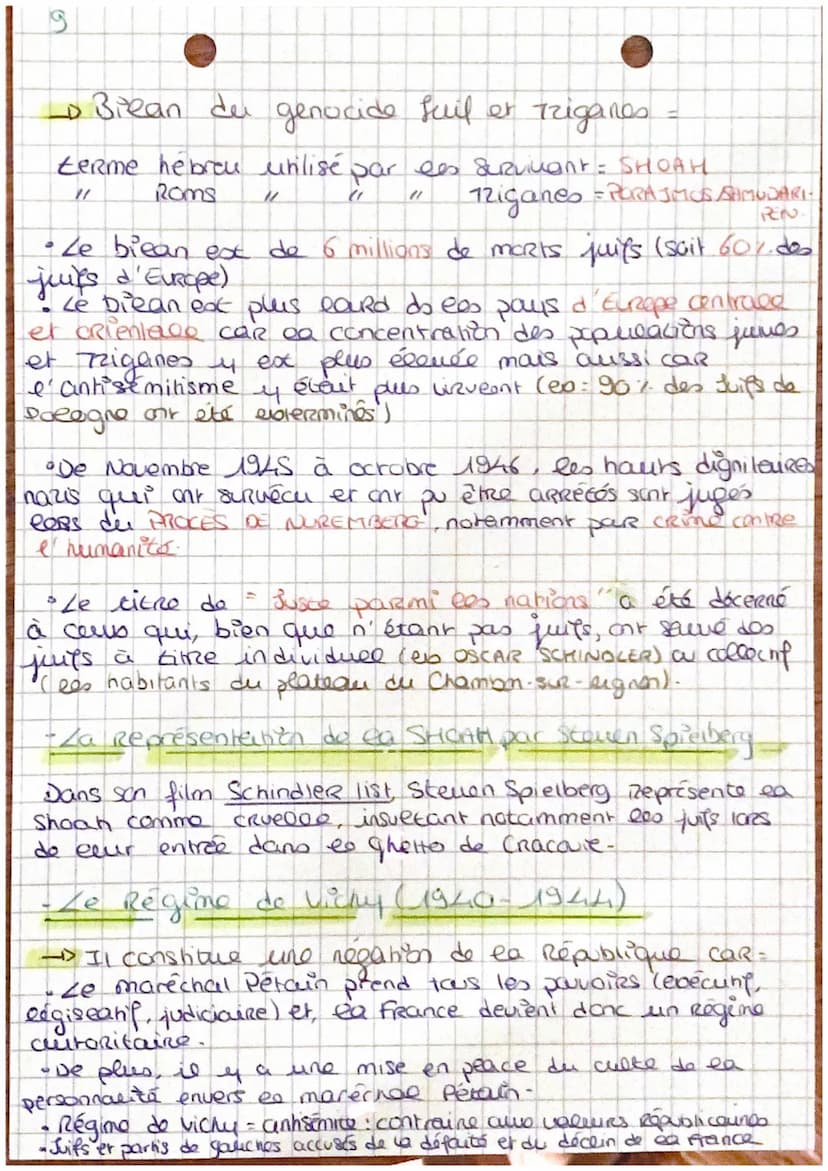 9
→ Bilan du genocide Juif et Tziganes =
terme hébreu utilisé par les survivant = SHOAH
" Roms " " " Tziganes = PORAJMOS/SAMUDARI-
PEN.
• Le bilan est de 6 millions de morts juifs (soit 60% des
juifs d'Europe)
• Le bilan est plus lourd ds les pays d'Europe centrale
et orientale car la concentration des populations juives
et Tziganes y est plus élevée mais aussi car
l'antisémitisme y était plus virulent (ex: 90% des Juifs de
Pologne ont été exterminés)
• De Novembre 1945 à octobre 1946, les hauts dignitaires
nazis qui ont survécu et ont pu être arrêtés sont jugés
lors du PROCÈS DE NUREMBERG, notemment par crime contre
l'humanité.
• Le titre de "Juste parmi les nations" a été décerné
à ceux qui, bien que n'étant pas juifs, ont sauvé des
juifs à titre individuel (ex OSCAR SCHINDLER) ou collectif
(les habitants du plateau du Chambon-sur-Lignon).
- La représentation de la SHOAH par Steven Spielberg
Dans son film Schindler list, Steven Spielberg représente la
Shoah comme cruelle, insultant notamment les juifs lors
de leur entrée dans le ghetto de Cracovie-
- Le Régime de Vichy (1940-1944)
→ Il constitue une négation de la République car =
• Le maréchal Pétain prend tous les pouvoirs (exécutif,
législatif, judiciaire) et, la France devient donc un régime
autoritaire.
• De plus, il y a une mise en place du culte de la
personnalité envers le maréchal Pétain-
• Régime de Vichy = antisémite : contraire aux valeurs républicaines
• Juifs et partis de gauches accusés de la défaite et du déclin de la France